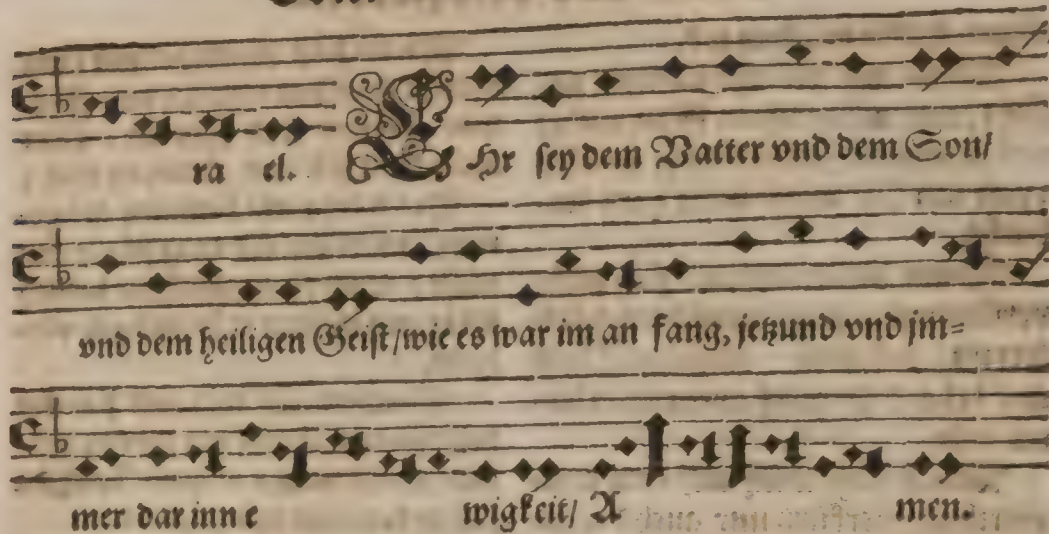 ra el. EHr sey dem Vatter vnd dem Son/
vnd dem heiligen Geist/wie es war im an fang, jetzund vnd jm=
mer dar inn e wigkeit/ A men.